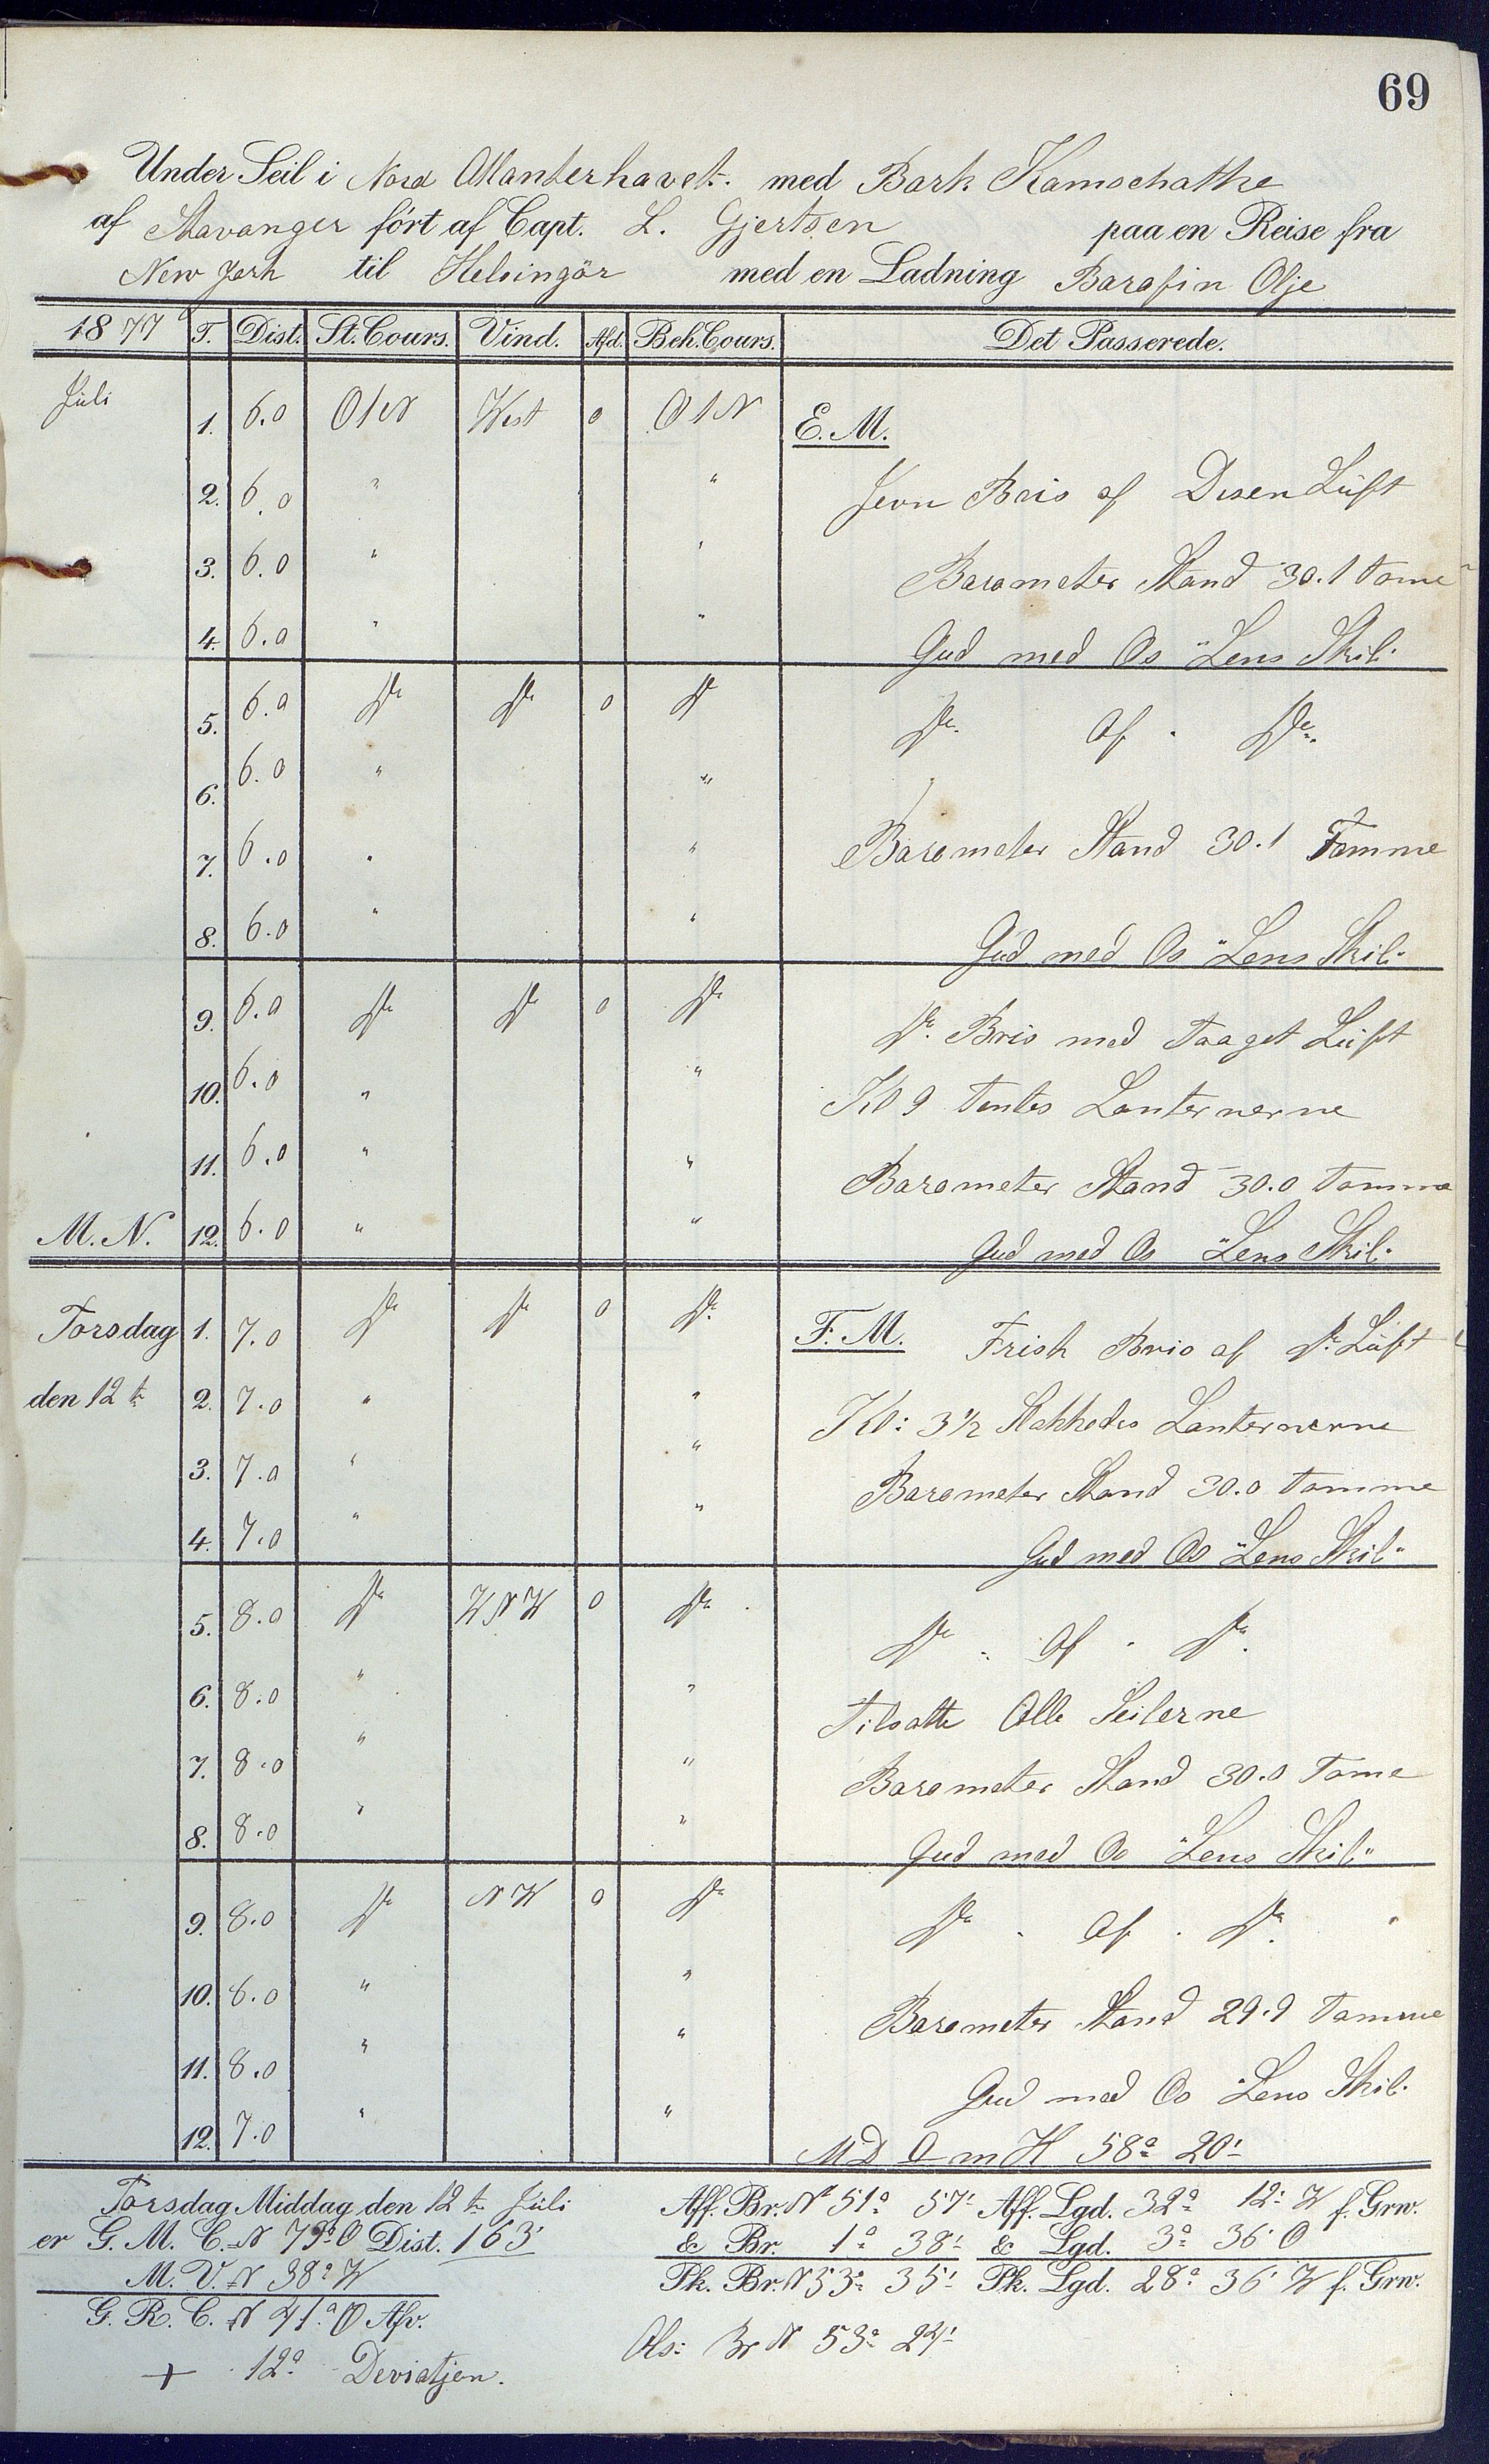 69
Under Seil i Nord Atlanterhavet. med Bark Kamschatke
af Stavanger ført af Capt. L. Gjertsen paa en Reise fra
New York til Helsingör med en Ladning Barafin Olje
1877 T. Dist. St. Cours. Vind. Afd. Beh. Cours. Det Passerede.
Juli 1. 6.0 OtN West 0 OtN E. M.
2. 6.0 " " Jevn Bris af Disen Lüft
3. 6.0 " " Barometer Stand 30.1 Tome
4. 6.0 " " Gud med Os "Lens Skib"
5. 6.0 Do Do 0 Do Do Af Do
6. 6.0 " "
7. 6.0 " " Barometer Stand 30.1 Tomme
8. 6.0 " " Gud med Os "Lens Skib"
9. 6.0 Do Do 0 Do Do Bris med Taaget Lüft
10. 6.0 " " Kl 9 Tentes Lanternerne
11. 6.0 " " Barometer Stand 30.0 Tomme
M. N. 12. 6.0 " " Gud med Os "Lens Skib"
Torsdag 1. 7.0 Do Do 0 Do F. M. Frisk Bris af Do Lüft
den 12te 2. 7.0 " " Kl: 3 1/2 Slakkedes Lanternerne
3. 7.0 " " Barometer Stand 30.0 Tomme
4. 7.0 " " Gud med Os "Lens Skib"
5. 8.0 Do WNW 0 Do Do Af Do
6. 8.0 " " Tilsatte Alle Seilerne
7. 8.0 " " Barometer Stand 30.0 Tome
8. 8.0 " " Gud med Os "Lens Skib"
9. 8.0 Do NW 0 Do Do Af Do
10. 8.0 " " Barometer Stand 29.9 Tomme
11. 8.0 " " Gud med Os "Lens Skib"
12. 7.0 " " M D O m H 58° 20'
Torsdag Middag den 12te Juli Aff. Br. N 51° 57' Aff. Lgd. 32° 12' W f. Grw.
er G. M. C. N 79° O Dist. 163' & Br. 1° 38' & Lgd. 3° 36' O
M. V. N 38° W Pk. Br. N 53° 35' Pk. Lgd. 28° 36' W f. Grw.
G. R. C. N 41° O Afv.
Obs: Br N 53° 24'
+ 12° Deviatjon.